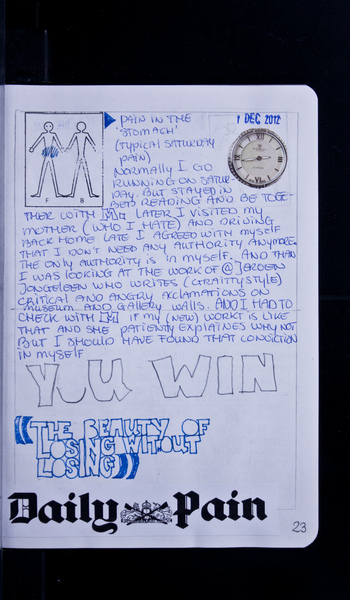 PAIN IN THE
'STOMACH'
(TYPICAL SATURDAY
PAIN)
1 DEC 2012
NORMALLY I GO
RUNNING ON SATUR-
DAY, BUT STAYED IN
BED READING AND BE TOGE-
THER WITH LATER I VISITED MY
MOTHER (WHO I HATE) AND DRIVING
BACK HOME LATE I AGREED WITH MYSELF
THAT I DON'T NEED ANY AUTHORITY ANYMORE.
THE ONLY AUTHORITY IS IN MYSELF. AND THAN
I WAS LOOKING AT THE WORK OF @ JEROEN
JONGELEEN WHO WRITES (GRAFITTY STYLE)
CRITICAL AND ANGRY ACLAMATIONS ON
MUSEUM AND GALLERY WALLS. AND I HAD TO
CHECK WITH IF MY (NEW) WORK IS LIKE
THAT AND SHE PATIENTLY EXPLAINES WHY NOT
BUT I SHOULD HAVE FOUND THAT CONVICTION
IN MYSELF
YOU WIN
((THE BEAUTY OF
LOSING WITOUT
LOSING))
Daily Pain
23
F B